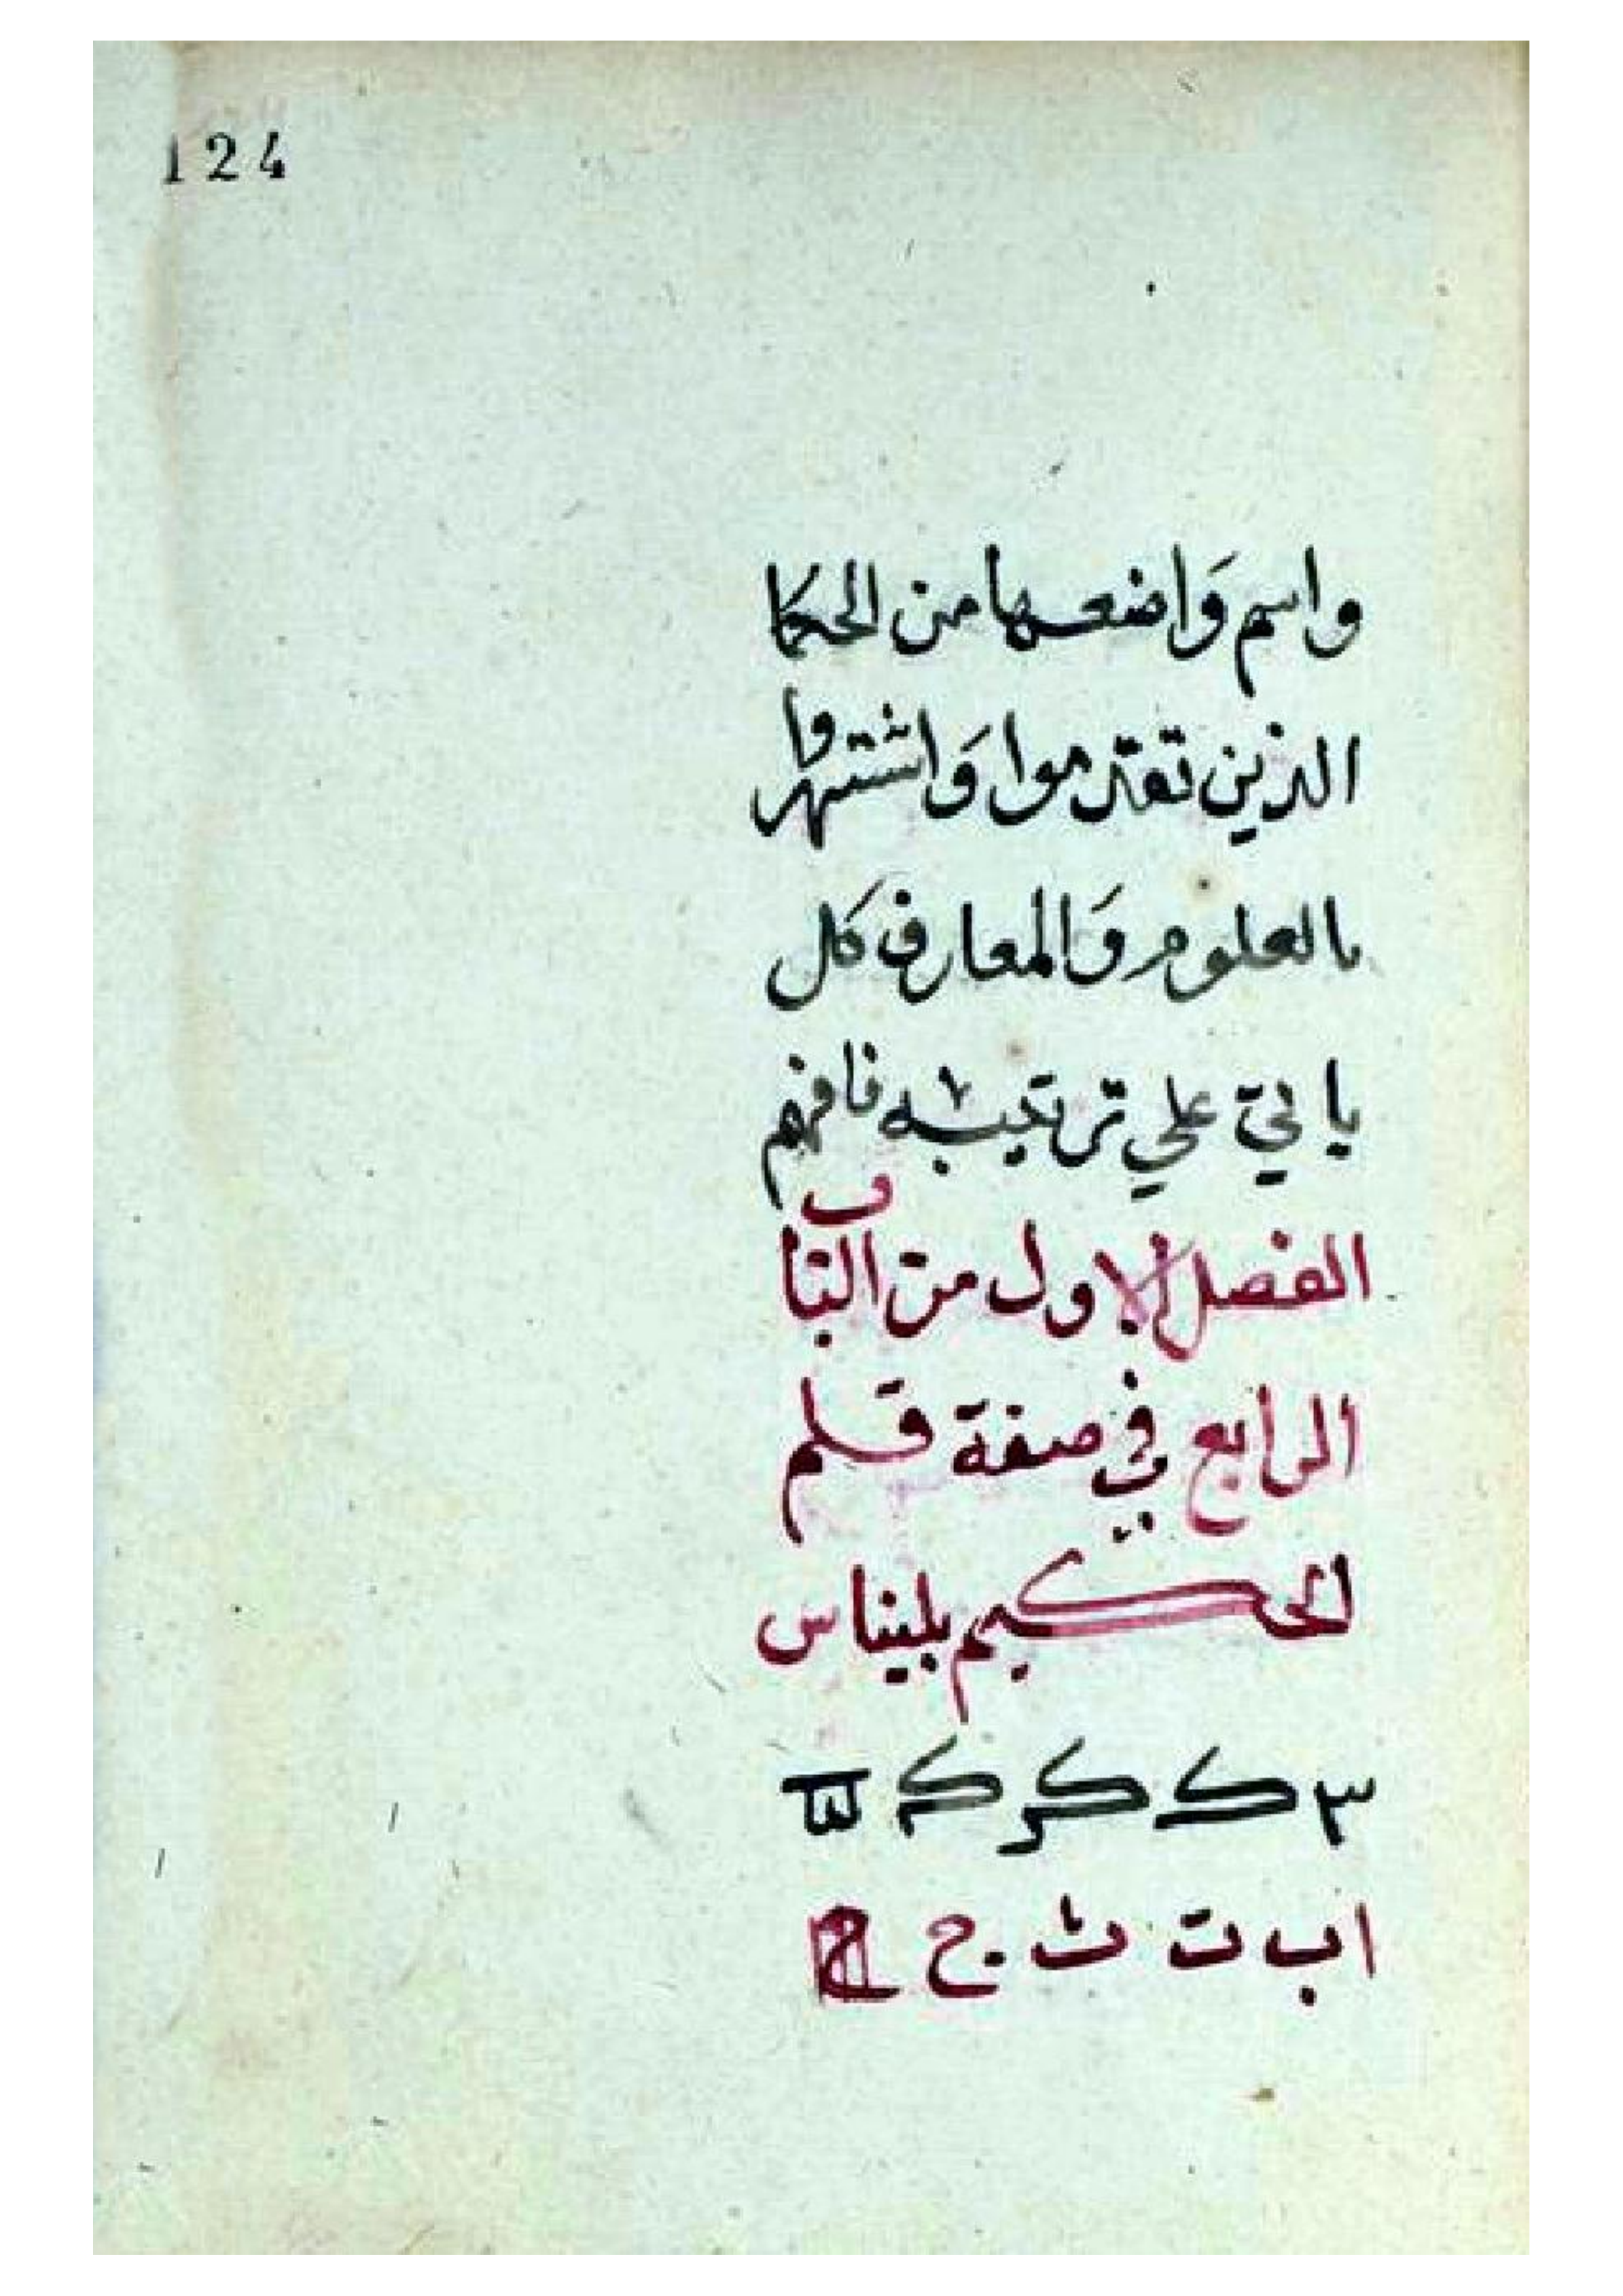 124
واسم وَاضعها من الحكما
الذين تقدموا وَاشتهروا
بالعلوم وَالمعارف كل
ياتي علي ترتيبه فافهم
الفصل الاول من الباب
الرابع في صفة قلم
الحكيم بليناس
ا ب ت ث ج ح